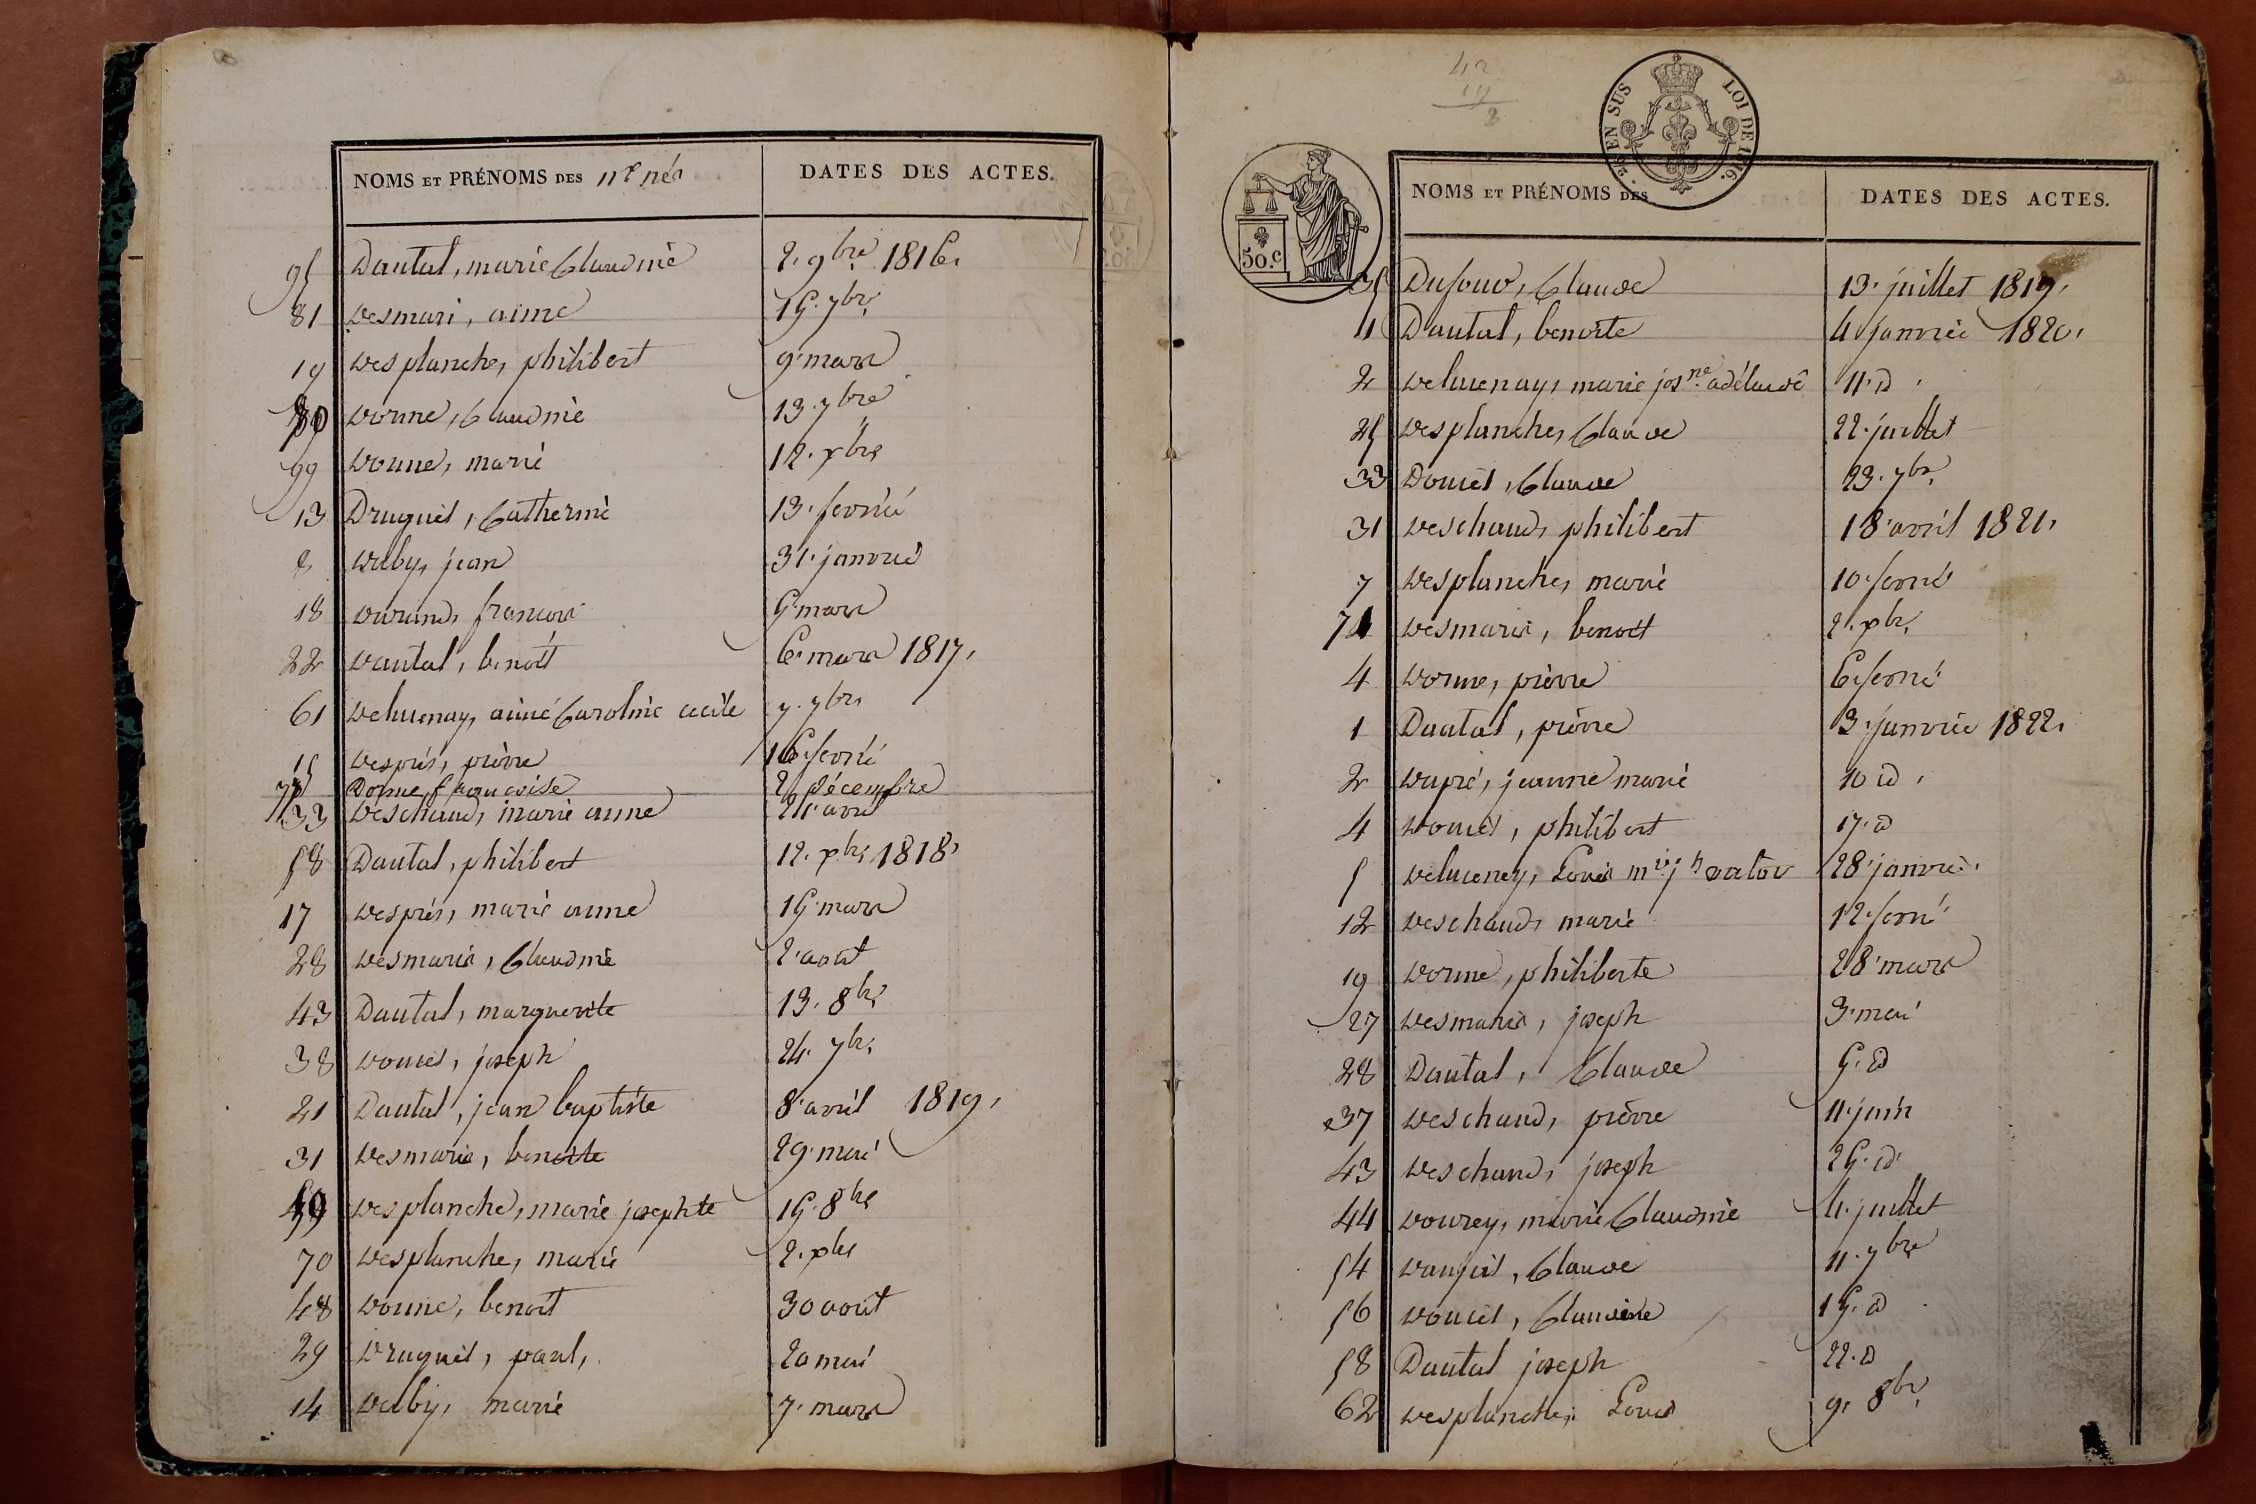 NOMS ET PRÉNOMS DES nx nés DATES DES ACTES.
95 Dautal, marie Claudine 2. 9bre 1816.
81 Desmari, aime 15. 7bre
19 Desplanche, philibert 9 mars
80 Dorme, Claudine 13. 7bre
99 Dorme, marie 12. xbre
13 Druguet, Catherine 13. fevrié
8 Dalby, jean 31. janvié
18 Durand, francois 5 mars
22 Dautal, benoît 6 mars 1817.
61 Delucenay, aimé Caroline cecile 7. 7bre
15 Desprès, pièrre 16 fevrié
75 Dorme, francoise 2 décembre
33 Deschand, marie anne 21 avril
58 Dautal, philibert 12. xbre 1818.
17 Desprès, marie anne 15 mars
28 Desmaris, Claudine 2. aout
43 Dautal, marguerite 13. 8bre
38 Doucet, joseph 24. 7bre
21 Dautal, jean baptiste 8 avril 1819.
31 Desmaris, benoitte 29 mai
59 Desplanche, marie josephte 15. 8bre
70 Desplanche, marie 2. xbre
48 Dorme, benoît 30 août
29 Druguet, paul, 20 mai
14 Dalby, marie 7. mars
42
19
2
2e EN SUS LOI DE 1816.
50.c
NOMS ET PRÉNOMS DES DATES DES ACTES.
35 Dufour, Claude 13. juillet 1819.
11 Dautal, benoite 4 janvié 1820.
2 Delucenay, marie josne adélaide 11. d
25 Desplanche, Claude 22. juillet
33 Doucet, Claude 23. 7bre
31 Deschand, philibert 18 avril 1821.
7 Desplanche, marie 10. fevrié
74 Desmaris, benoit 2. xbre
4 Dorme, pièrre 6 fevrié
1 Dautal, pièrre 3. janvié 1822.
2 Dupré, jeanne marie 10 d
4 Doucet, philibert 17. d
5 Deluceney, Louis mie jh 28 janvié
12 Deschand, marie 12. fevrié
19 Dorme, philiberte 28 mars
27 Desmaris, joseph 3. mai
28 Dautal, Claude 5. d
37 Deschand, pièrre 11. juin
43 Deschand, joseph 25. d
44 Dourey, marie Claudine 4. juillet
54 Claude 11. 7bre
56 Doucet, Claudine 15. d
58 Dautal joseph 22. d
62 Desplanche, Louis 9. 8bre